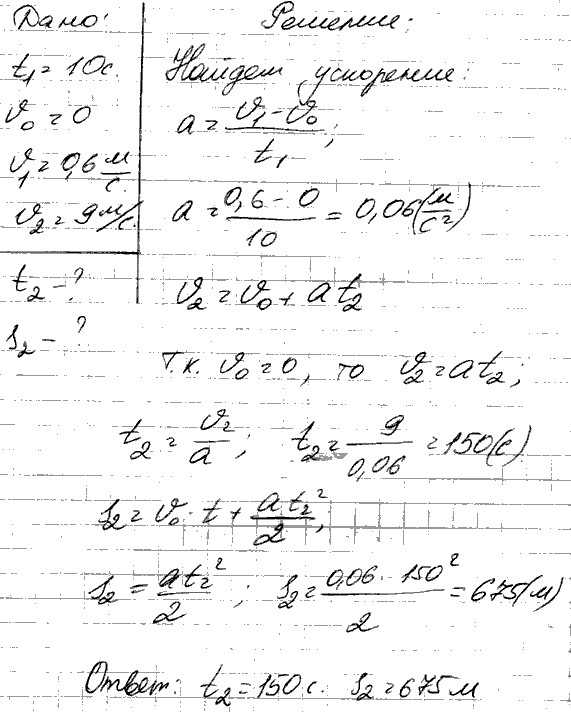 Дано:
t₁ = 10с.
v₀ = 0
v₁ = 0,6 м/с.
v₂ = 9 м/с.
t₂ - ?
s₂ - ?
Решение:
Найдем ускорение:
a = (v₁ - v₀)/t₁;
a = (0,6 - 0)/10 = 0,06 (м/с²)
v₂ = v₀ + at₂
т.к. v₀ = 0, то v₂ = at₂;
t₂ = v₂/a; t₂ = 9/0,06 = 150(с)
s₂ = v₀ · t + at₂²/2;
s₂ = at₂²/2; s₂ = 0,06 · 150²/2 = 675(м)
Ответ: t₂ = 150 с. s₂ = 675 м